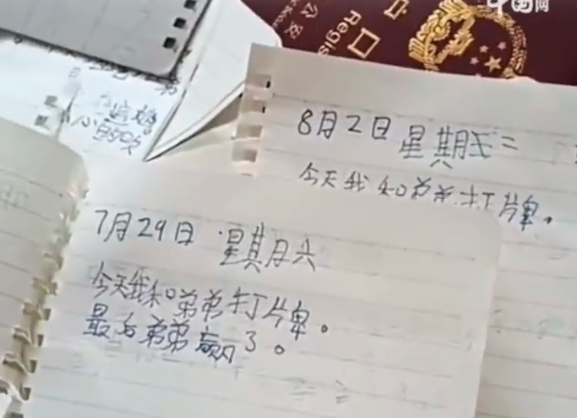 中国网
Regis
8月2日 星期三
今天我和弟弟打牌。
7月29日 星期六
今天我和弟弟打牌。
最后弟弟赢了。